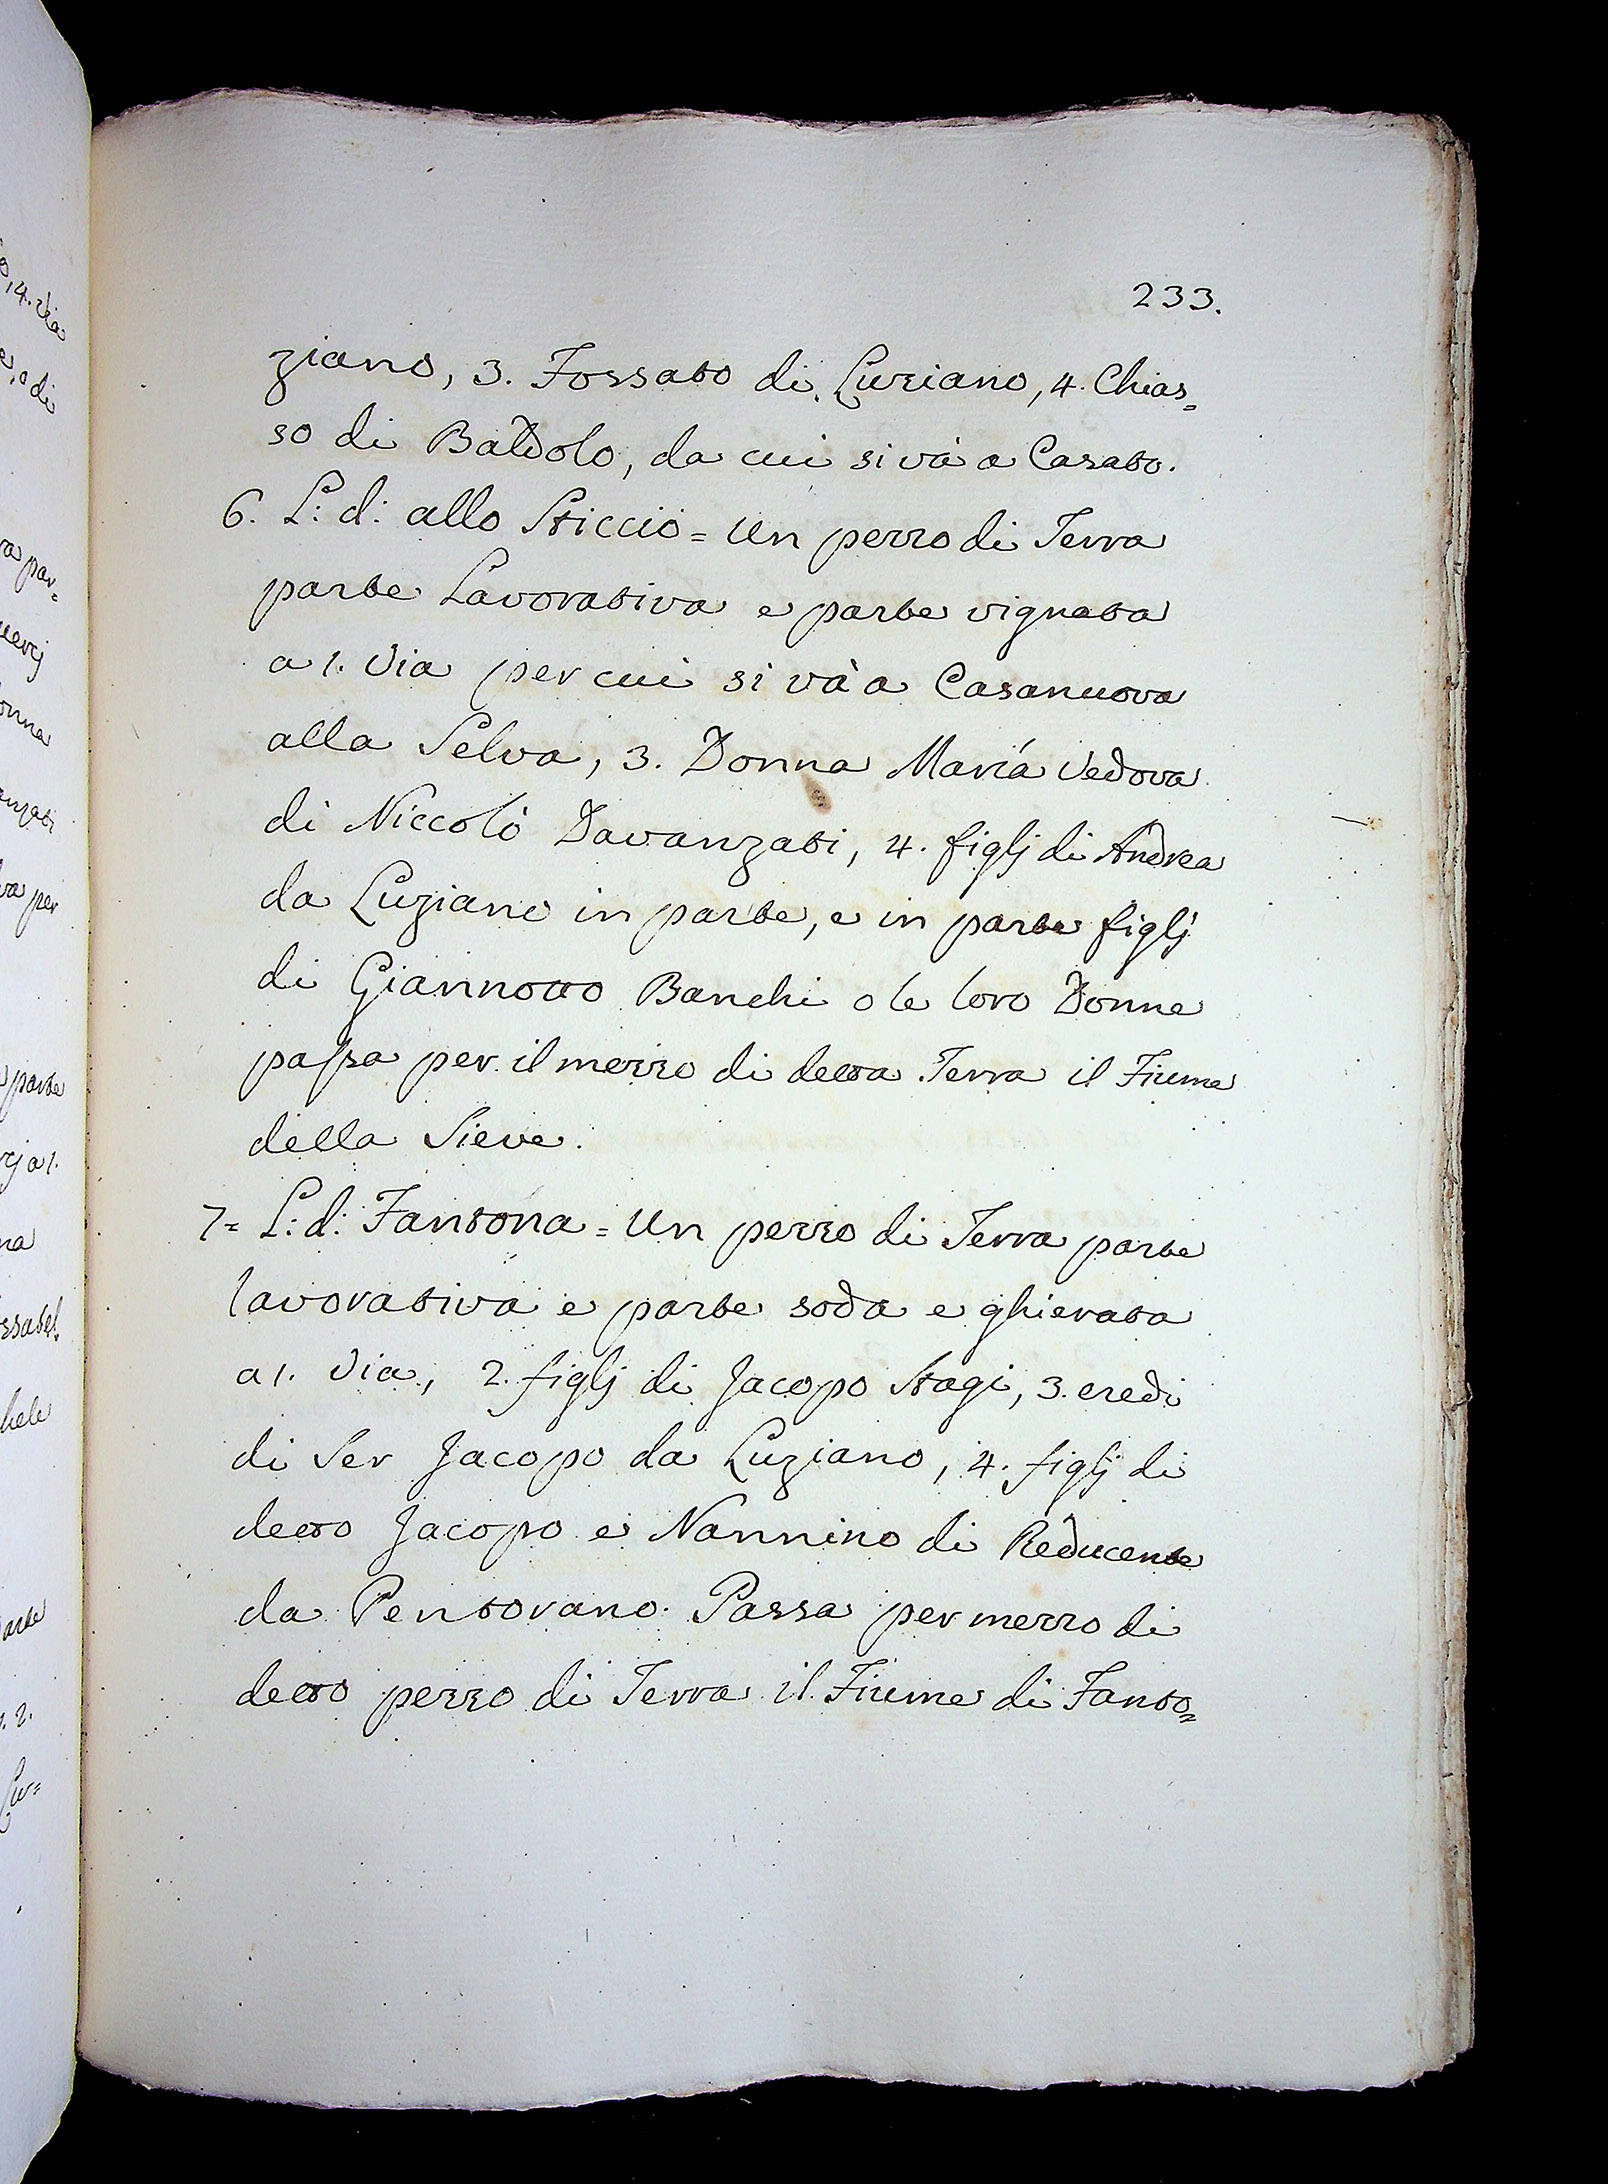 233.
ziano, 3. Fossato di Luziano, 4. Chias=
so di Baldolo, da cui si và a Casato.
6. L: d: allo Sticcio = Un pezzo di Terra
parte Lavorativa e parte vignata
a 1. Via per cui si và a Casanuova
alla Selva, 3. Donna Maria Vedova
di Niccolò Davanzati, 4. figlj di Andrea
da Luziano in parte, e in parte figlj
di Giannotto Banchi o le loro Donne
passa per il mezzo di detta Terra il Fiume
della Sieve.
7= L: d: Fantona = Un pezzo di Terra parte
lavorativa e parte soda e ghierata
a 1. Via, 2. figlj di Jacopo Stagi, 3. eredi
di Ser Jacopo da Luziano, 4. figlj di
detto Jacopo e Nannino di Reducente
da Pentorano. Passa per mezzo di
detto pezzo di Terra il Fiume di Fanto=